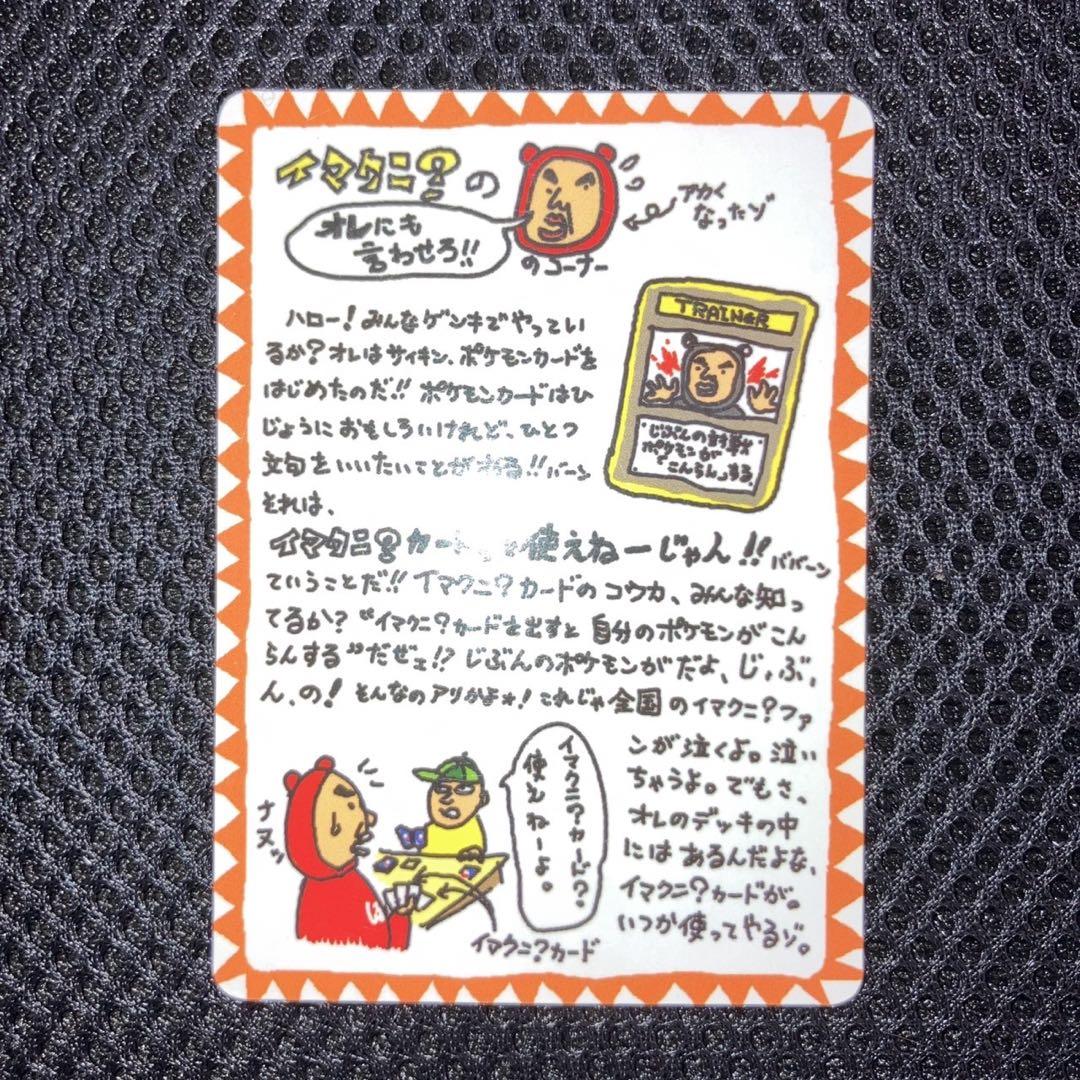 イマクニ?の
オレにも
言わせろ!!
のコーナー
アカく
なったゾ
ハロー!みんなゲンキでやってい
るか?オレはサイキン、ポケモンカードを
はじめたのだ!!ポケモンカードはひ
じょうにおもしろいけれど、ひとつ
文句をいいたいことがある!!バーン
それは、
イマクニ?カード 使えねーじゃん!!ババーン
ていうことだ!!イマクニ?カードのコウカ、みんな知っ
てるか?“イマクニ?カードを出すと自分のポケモンがこん
らんする”だぜェ!?じぶんのポケモンがだよ、じ、ぶ、
ん、の!そんなのアリかよォ!これじゃ全国のイマクニ?ファ
ンが泣くよ。泣い
ちゃうよ。でもさ、
オレのデッキの中
にはあるんだよな、
イマクニ?カードが。
いつか使ってやるゾ。
TRAINER
じぶんの
ポケモンが
「こんらん」する。
ナヌッ
イマクニ?カード?
使えねーよ。
イマクニ?カード